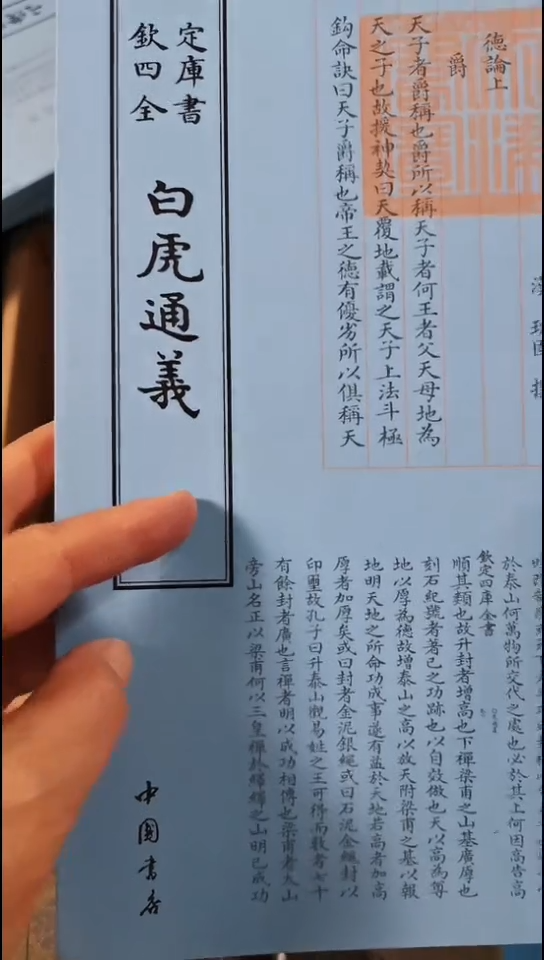 欽定
四庫
全書
白虎通義
中國書店
德論上
爵
天子者爵稱也爵所以稱天子者何王者父天母地為
天之子也故援神契曰天覆地載謂之天子上法斗極
鈎命訣曰天子爵稱也帝王之德有優劣所以俱稱天
於泰山何萬物所交代之處也必於其上何因高告高
欽定四庫全書
順其類也故升封者增高也下禪梁甫之山基廣厚也
刻石紀號者著己之功跡也以自效倣也天以高為尊
地以厚為德故增泰山之高以放天附梁甫之基以報
地明天地之所命功成事遂有益於天地若高者加高
厚者加厚矣或曰封者金泥銀繩或曰石泥金繩封以
印璽故孔子曰升泰山觀易姓之王可得而數者七十
有餘封者廣也言禪者明以成功相傳也梁甫者太山
旁山名正以梁甫何以三皇禪於繹繹之山明已成功